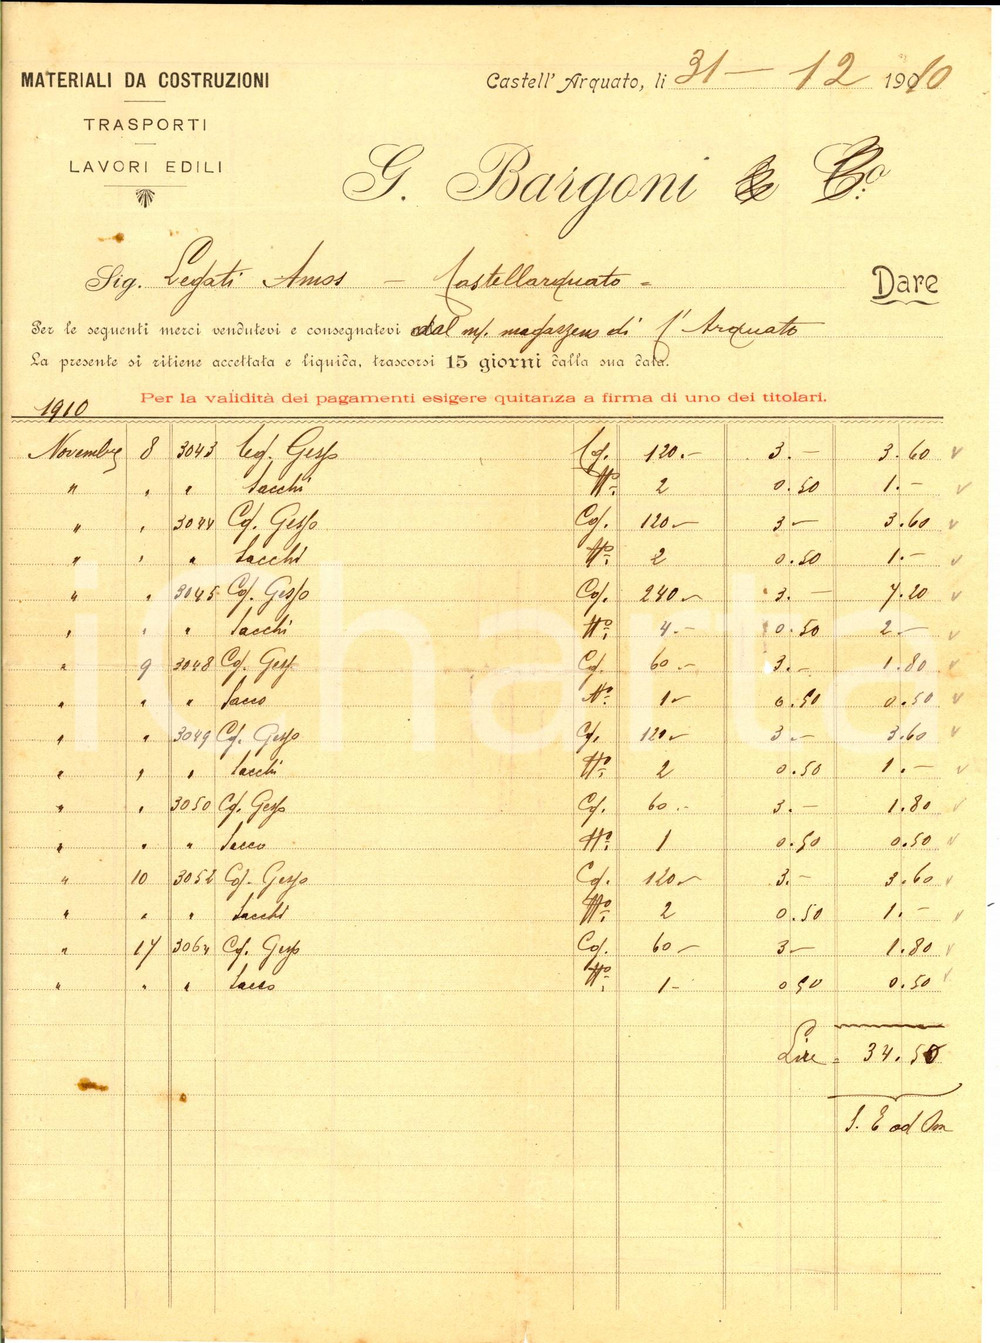 MATERIALI DA COSTRUZIONI
TRASPORTI
LAVORI EDILI
Castell' Arquato, li 31 — 12 1910
G. Bargoni & C.o
Sig. Legati Amos — Castellarquato =
Dare
Per le seguenti merci vendutevi e consegnatevi dal m/. magazzeno di C' Arquato
La presente si ritiene accettata e liquida, trascorsi 15 giorni dalla sua data.
Per la validità dei pagamenti esigere quitanza a firma di uno dei titolari.
1910
Novembre 8 3043 Cg. Gesso Cg. 120.— 3.— 3.60
" " " Sacchi No. 2 0.50 1.—
" " 3044 Cg. Gesso Cg. 120— 3— 3.60
" " " Sacchi No. 2 0.50 1.—
" " 3045 Cg. Gesso Cg. 240— 3.— 7.20
" " " Sacchi No. 4.— 0.50 2.—
" 9 3048 Cg. Gesso Cg. 60.— 3.— 1.80
" " " Sacco No. 1— 0.50 0.50
" " 3049 Cg. Gesso Cg. 120— 3— 3.60
" " " Sacchi No. 2 0.50 1.—
" " 3050 Cg. Gesso Cg. 60.— 3.— 1.80
" " " Sacco No. 1 0.50 0.50
" 10 3052 Cg. Gesso Cg. 120— 3.— 3.60
" " " Sacchi No. 2 0.50 1.—
" 17 3064 Cg. Gesso Cg. 60— 3— 1.80
" " " Sacco No. 1— 0.50 0.50
Lire = 34.50
S. E od Om
iCharta